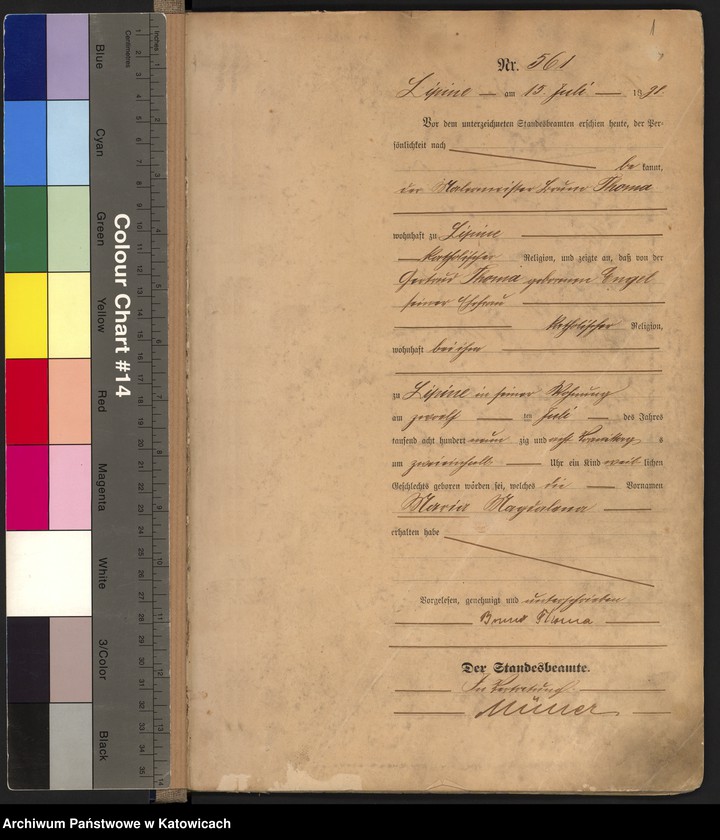 Nr. 561
Lipine am 13. Juli 1898.
Vor dem unterzeichneten Standesbeamten erschien heute, der Per-
sönlichkeit nach
be kannt,
der Malermeister Bruno Thoma
wohnhaft zu Lipine
katholischer Religion, und zeigte an, daß von der
Gertrud Thoma geborenen Engel
seiner Ehefrau
katholischer Religion,
wohnhaft bei ihm
zu Lipine in seiner Wohnung
am zwoelf ten Juli des Jahres
tausend acht hundert neun zig und acht Vormittag s
um Uhr ein Kind weib lichen
Geschlechts geboren worden sei, welches die Vornamen
Maria Magdalena
erhalten habe
Vorgelesen, genehmigt und unterschrieben
Bruno Thoma
Der Standesbeamte.
In Vertretung
Müller
Colour Chart #14
Blue
Cyan
Green
Yellow
Red
Magenta
White
3/Color
Black
Centimetres
Inches
Archiwum Państwowe w Katowicach